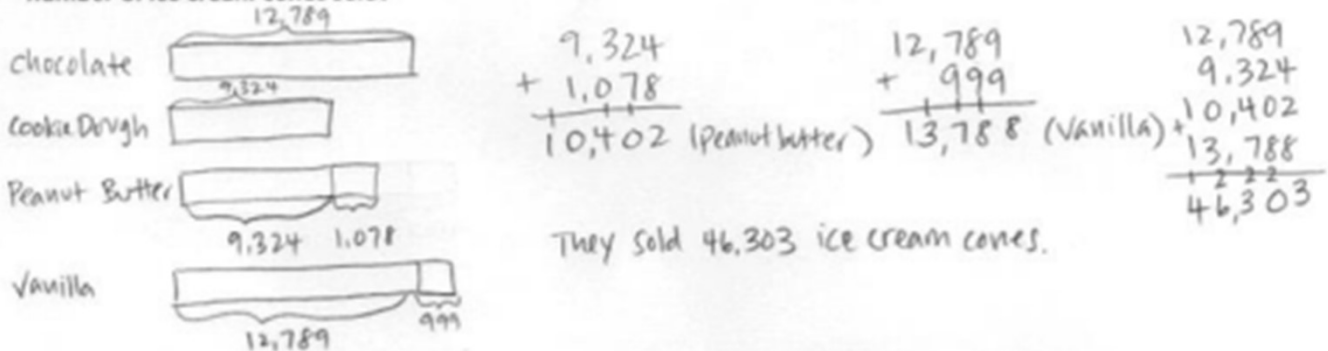 12,789
chocolate
9,324
Cookie Dough
Peanut Butter
9,324 1,078
Vanilla
12,789 999
9,324
+ 1,078
10,402 (Peanut butter)
12,789
+ 999
13,788 (Vanilla)
12,789
9,324
10,402
+ 13,788
1 2 2 2
46,303
They sold 46,303 ice cream cones.